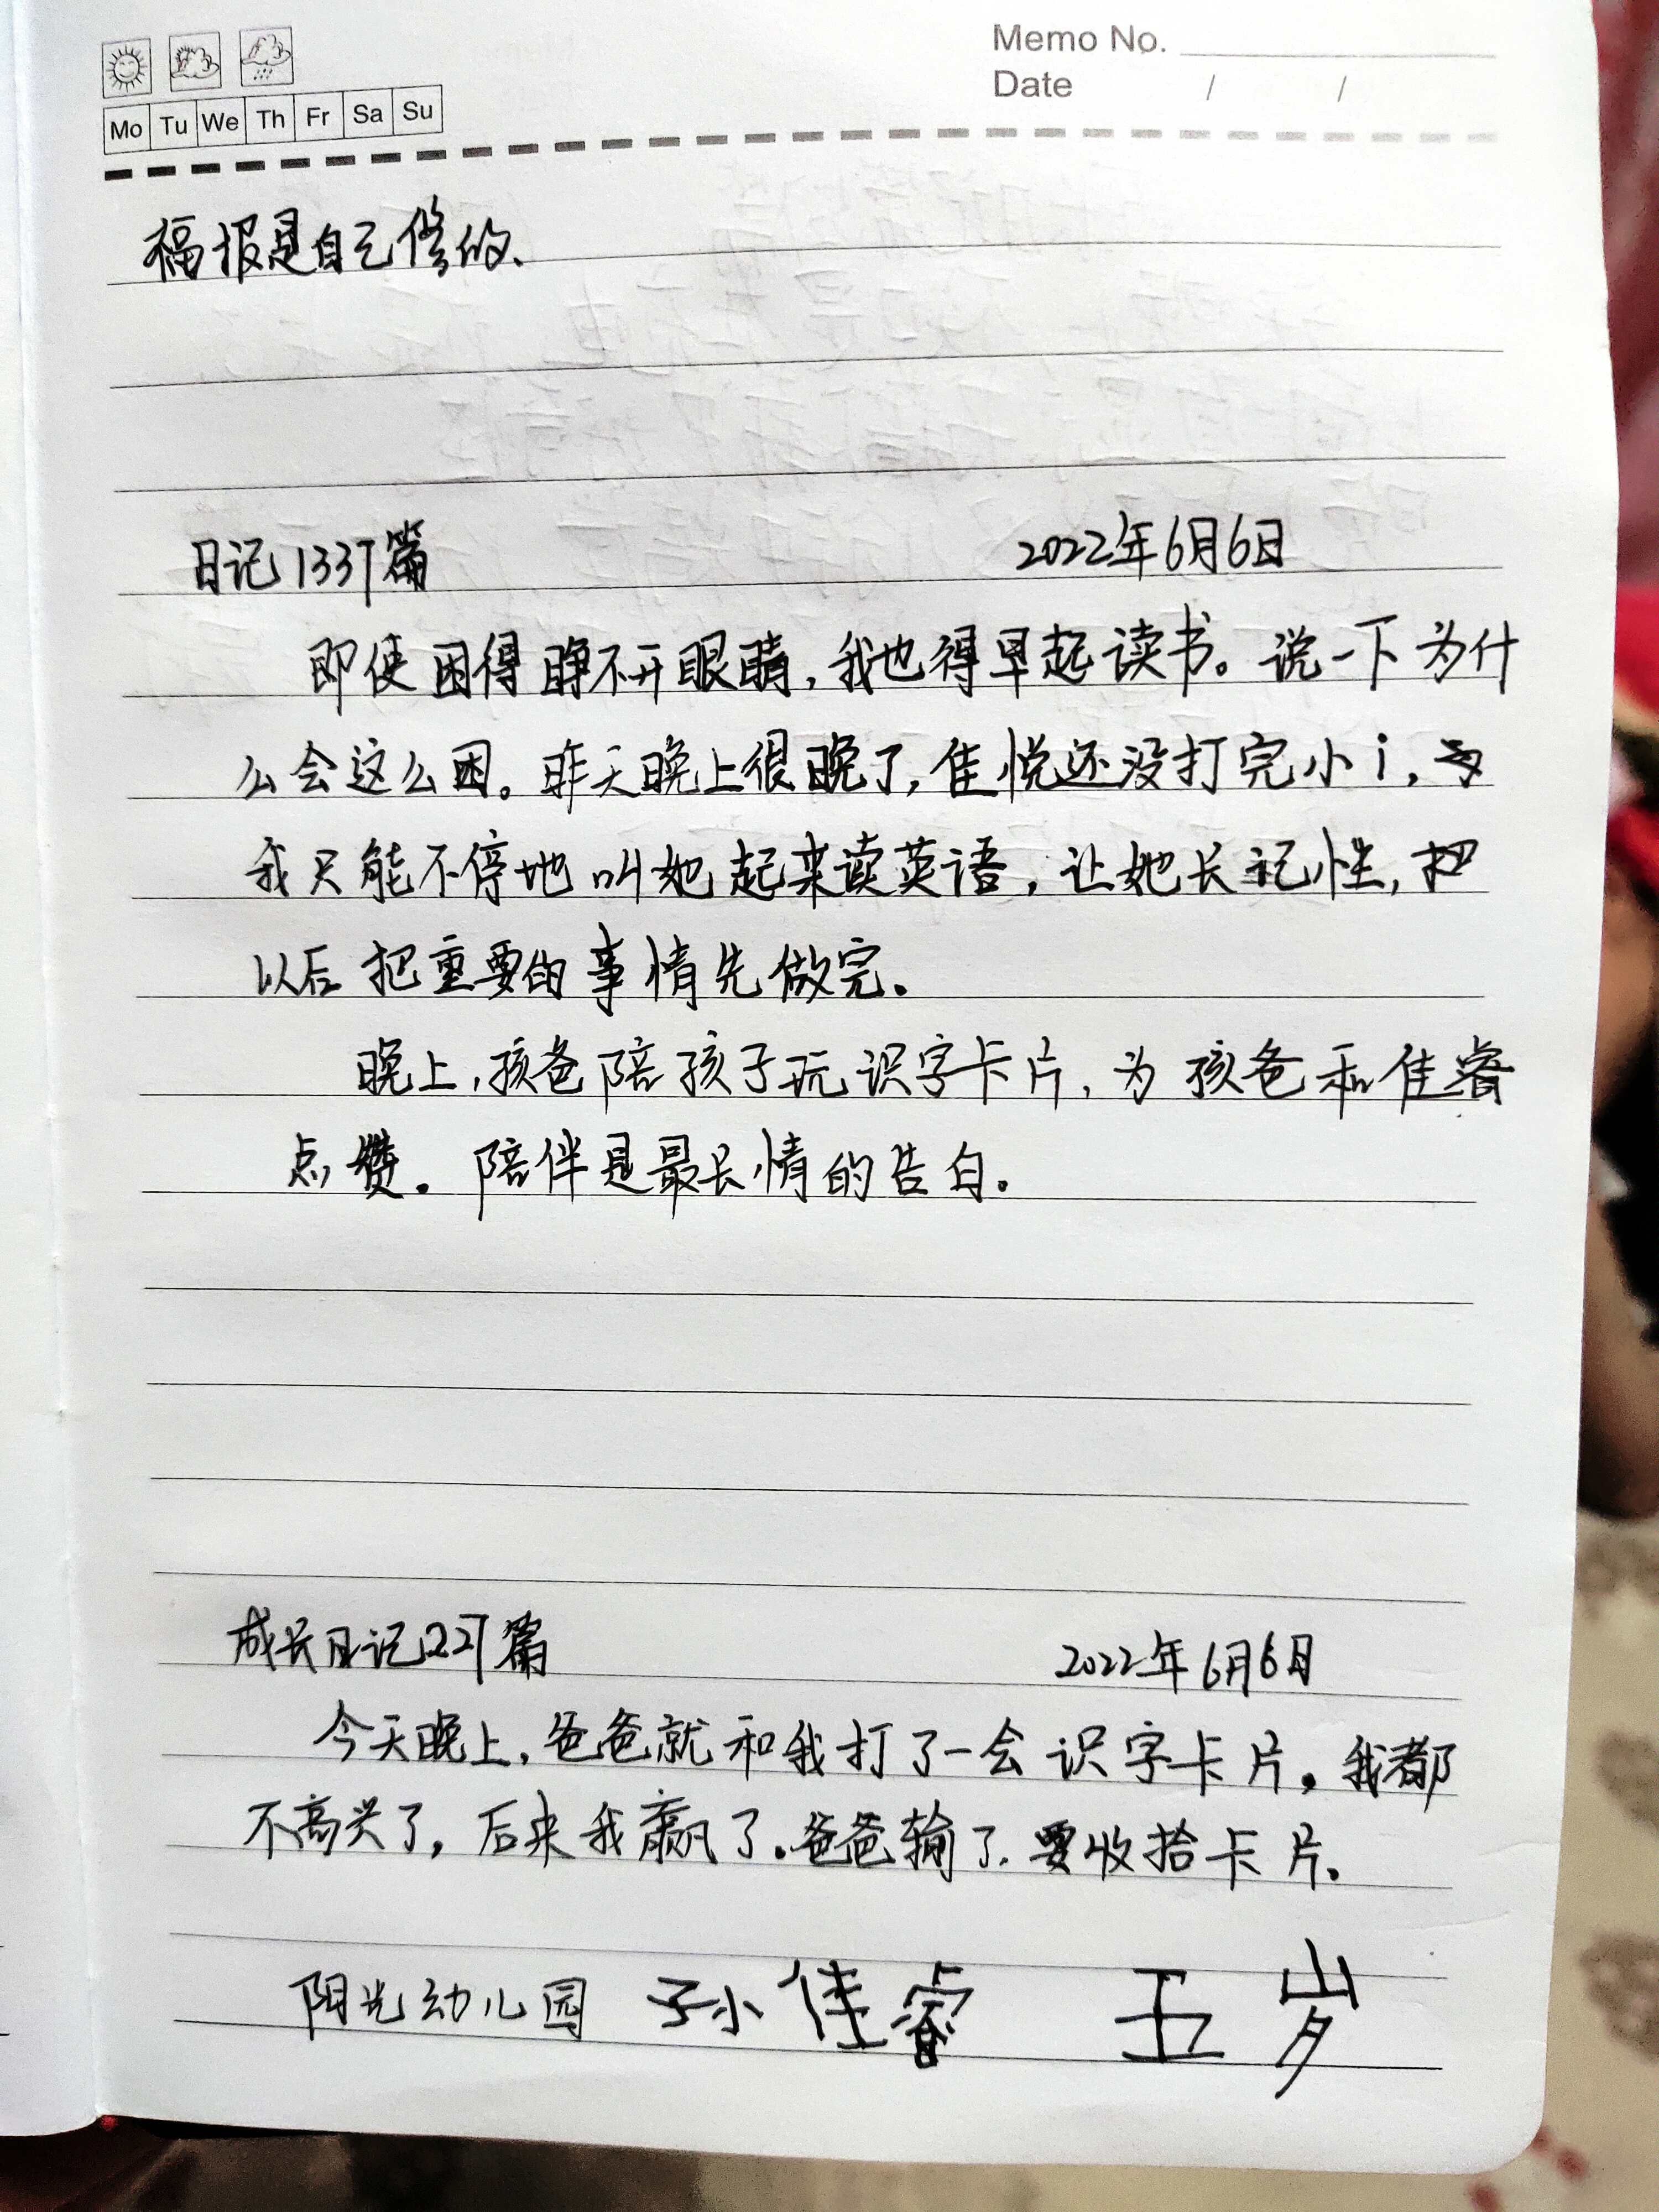 Memo No.
Date / /
Mo Tu We Th Fr Sa Su
福报是自己修的、
日记1337篇 2022年6月6日
即使困得睁不开眼睛,我也得早起读书。说一下为什
么会这么困。昨天晚上很晚了,佳悦还没打完小i,
我只能不停地叫她起来读英语,让她长记性,
以后把重要的事情先做完。
晚上,孩爸陪孩子玩识字卡片,为孩爸和佳睿
点赞。陪伴是最长情的告白。
成长日记227篇 2022年6月6日
今天晚上,爸爸就和我打了一会识字卡片。我都
不高兴了,后来我赢了。爸爸输了.要收拾卡片.
阳光幼儿园 孙佳睿 五岁